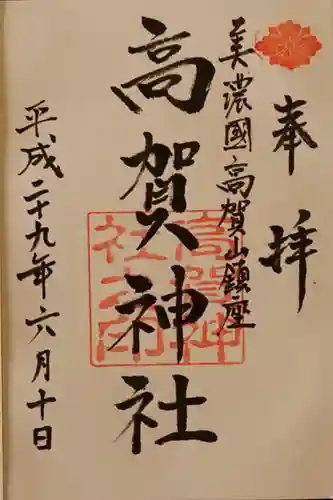 奉拝
美濃國高賀山鎮座
高賀神社
平成二十九年六月十日
高賀神社之印